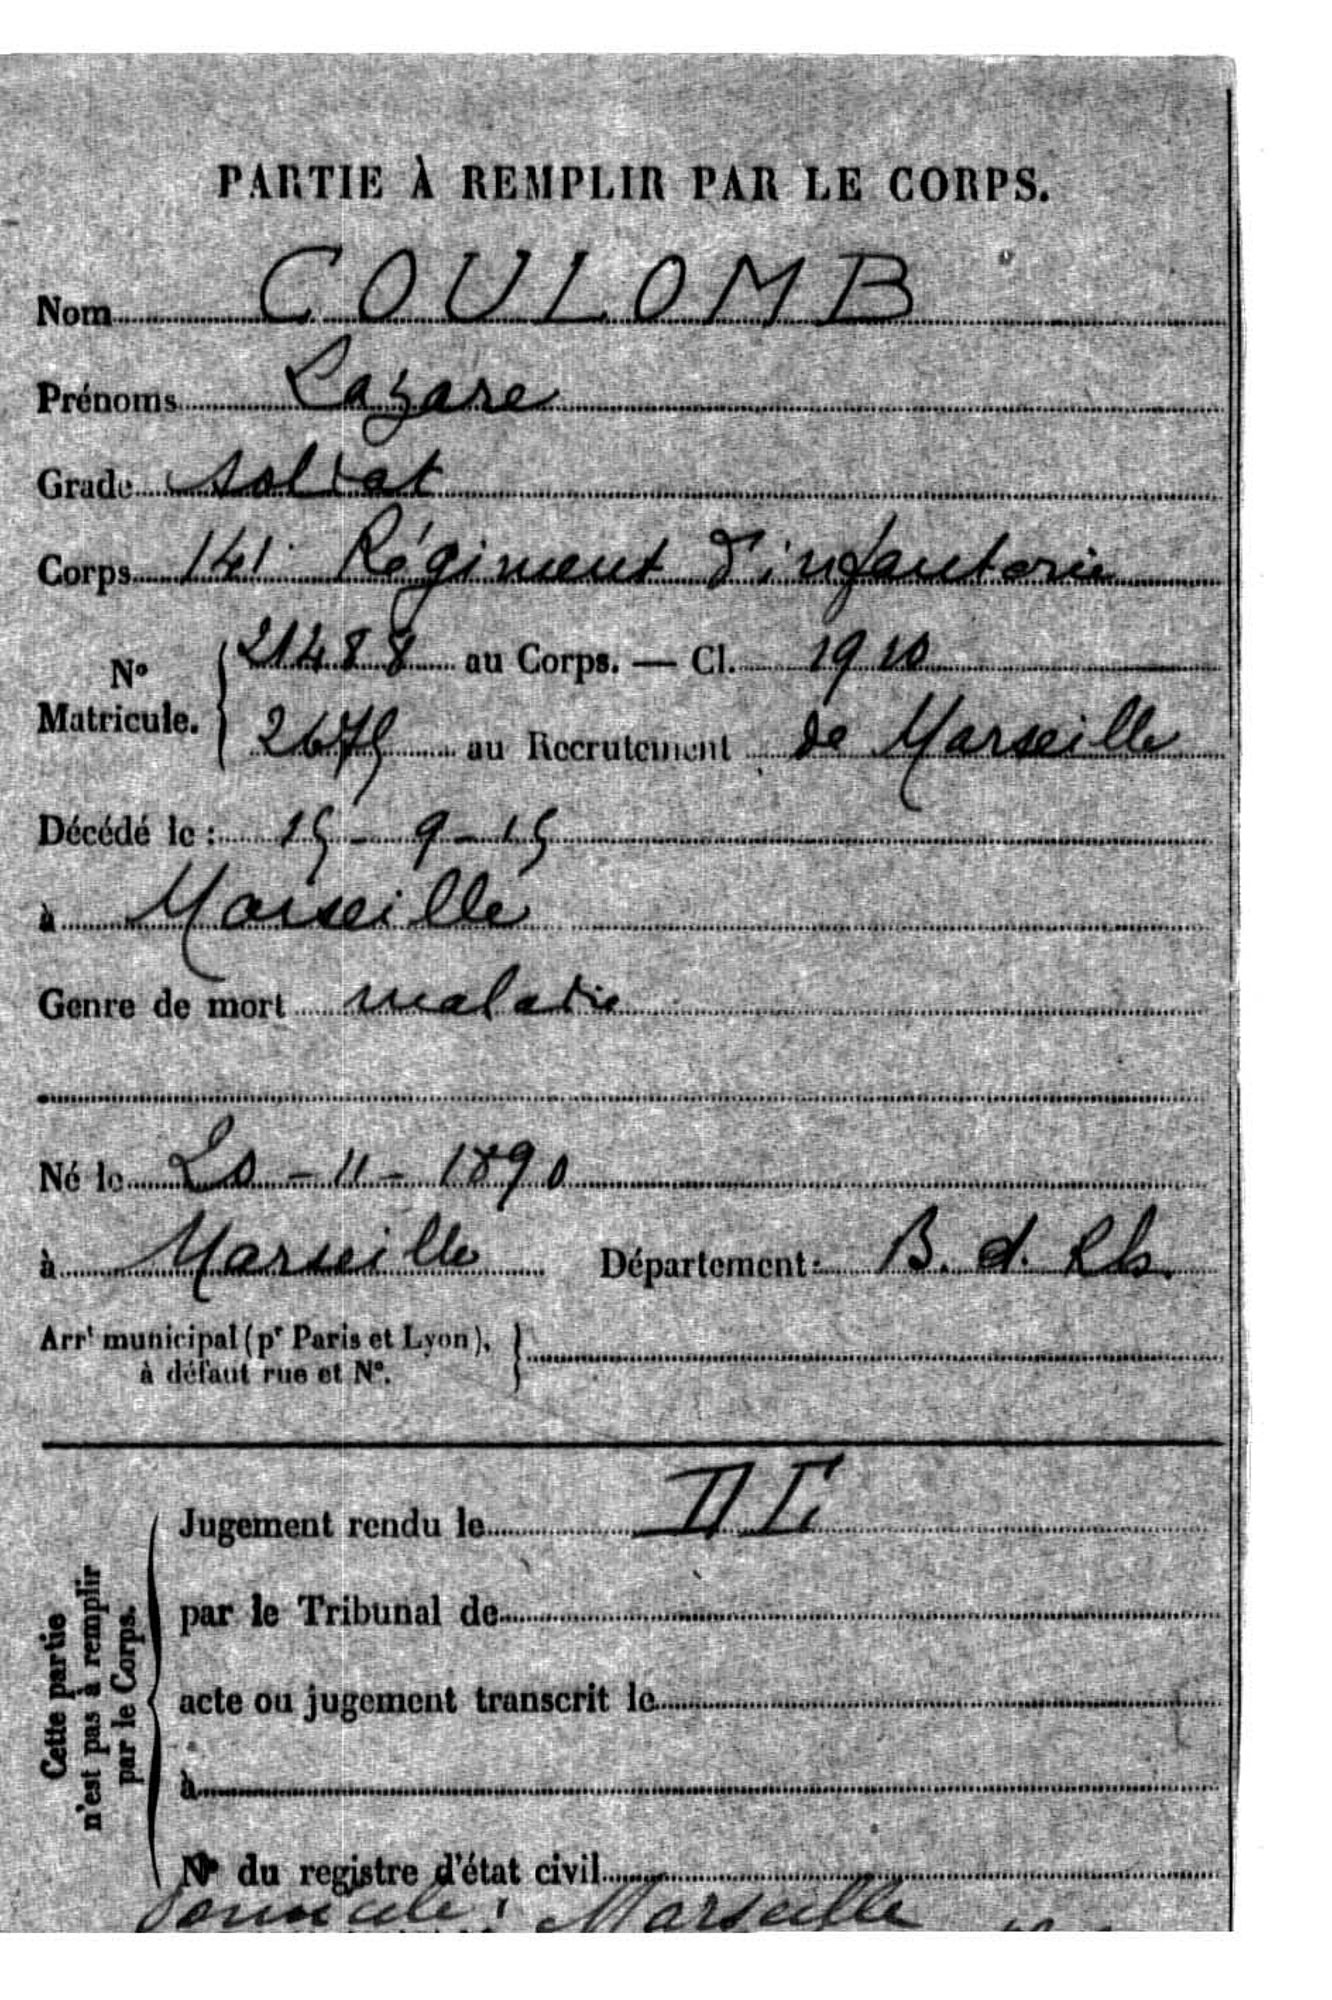 PARTIE À REMPLIR PAR LE CORPS.
Nom COULOMB
Prénoms Lazare
Grade soldat
Corps 141 Régiment d'infanterie
N° Matricule. 21488 au Corps. — Cl. 1910
2675 au Recrutement de Marseille
Décédé le : 15 - 9 - 15
à Marseille
Genre de mort maladie
Né le 20 - 11 - 1890
à Marseille Département : B. d. Rh.
Arrt municipal (pr Paris et Lyon),
à défaut rue et N°.
Cette partie
n'est pas à remplir
par le Corps.
Jugement rendu le
par le Tribunal de
acte ou jugement transcrit le
à
N° du registre d'état civil
Domicile : Marseille